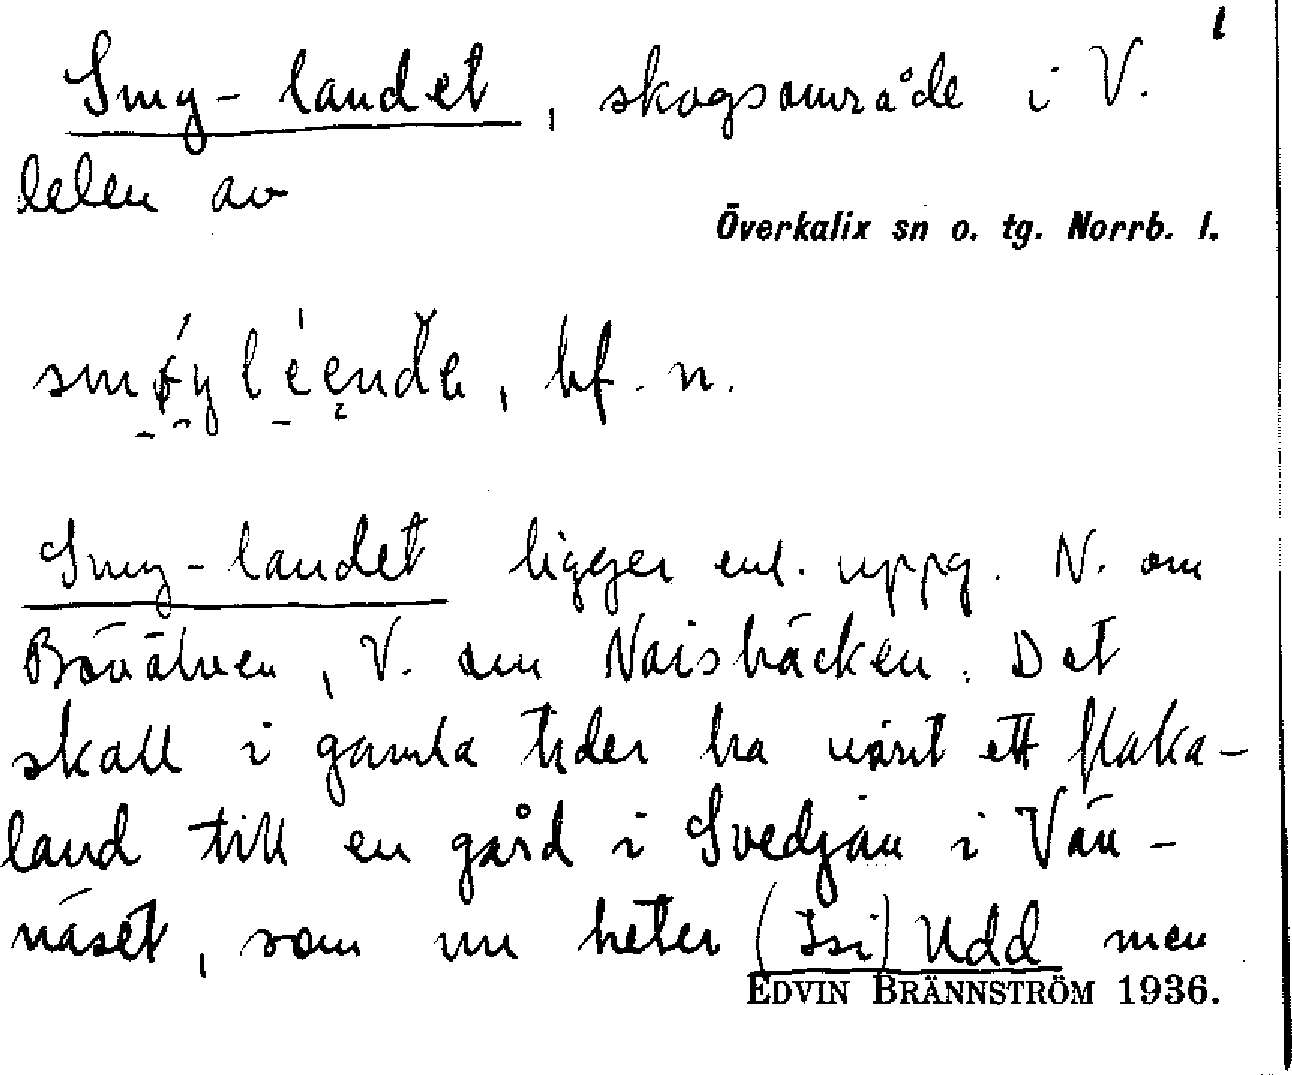 1
Smy-landet, skogsområde i V.
delen av
Överkalix sn o. tg. Norrb. l.
bf. n.
Smy-landet ligger enl. uppg. N. om
Bönälven, V. om Naisbäcken. Det
skall i gamla tider ha varit ett flaka-
land till en gård i Svedjan i Vän-
näset, som nu heter (Isi) Udd men
EDVIN BRÄNNSTRÖM 1936.